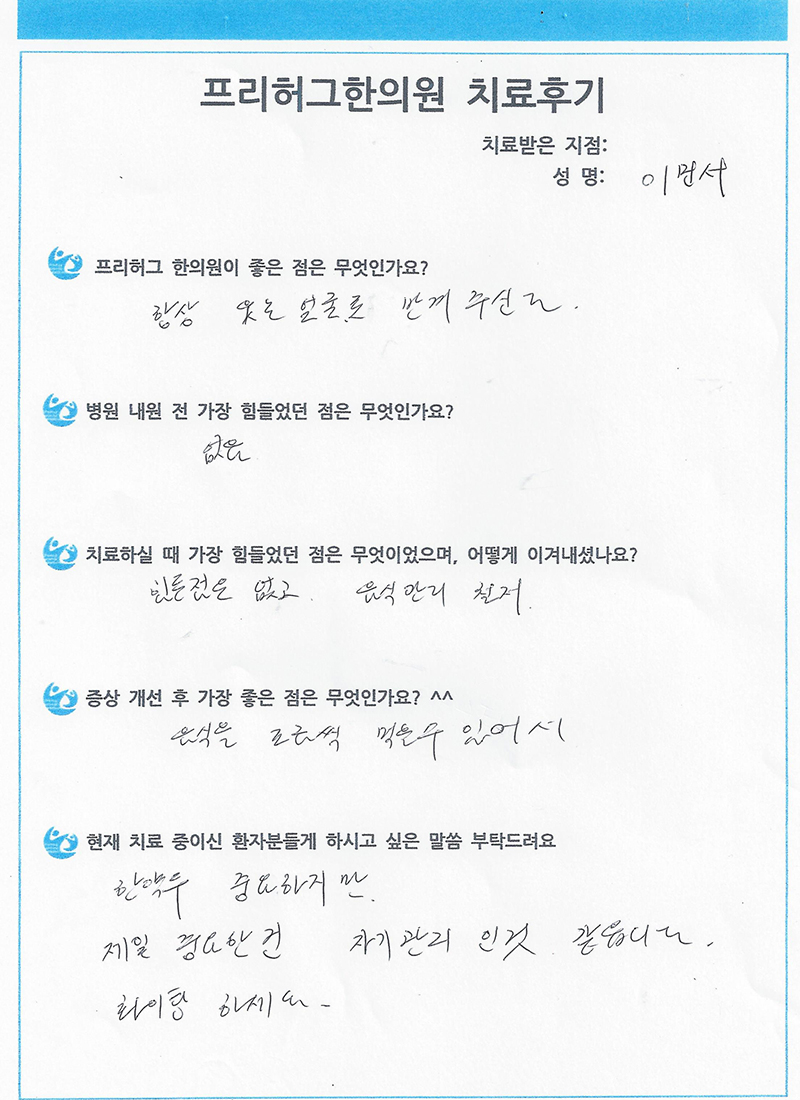 프리허그한의원 치료후기
치료받은 지점:
성 명: 이민서
프리허그 한의원이 좋은 점은 무엇인가요?
항상 웃는 얼굴로 반겨 주신다.
병원 내원 전 가장 힘들었던 점은 무엇인가요?
없음
치료하실 때 가장 힘들었던 점은 무엇이었으며, 어떻게 이겨내셨나요?
힘든점은 없고. 음식관리 철저.
증상 개선 후 가장 좋은 점은 무엇인가요? ^^
음식을 조금씩 먹을수 있어서
현재 치료 중이신 환자분들게 하시고 싶은 말씀 부탁드려요
한약두 중요하지만.
제일 중요한건 자기관리 인것 같읍니다.
화이팅 하세요-